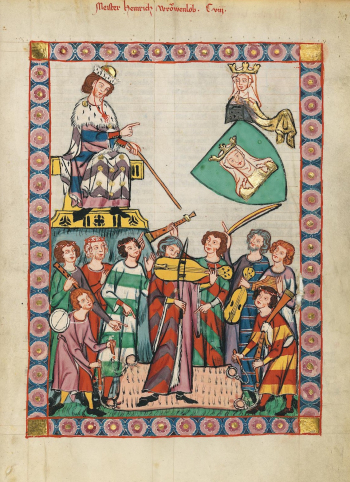 Meister Heinrich Vrŏwenlob. C.viii.